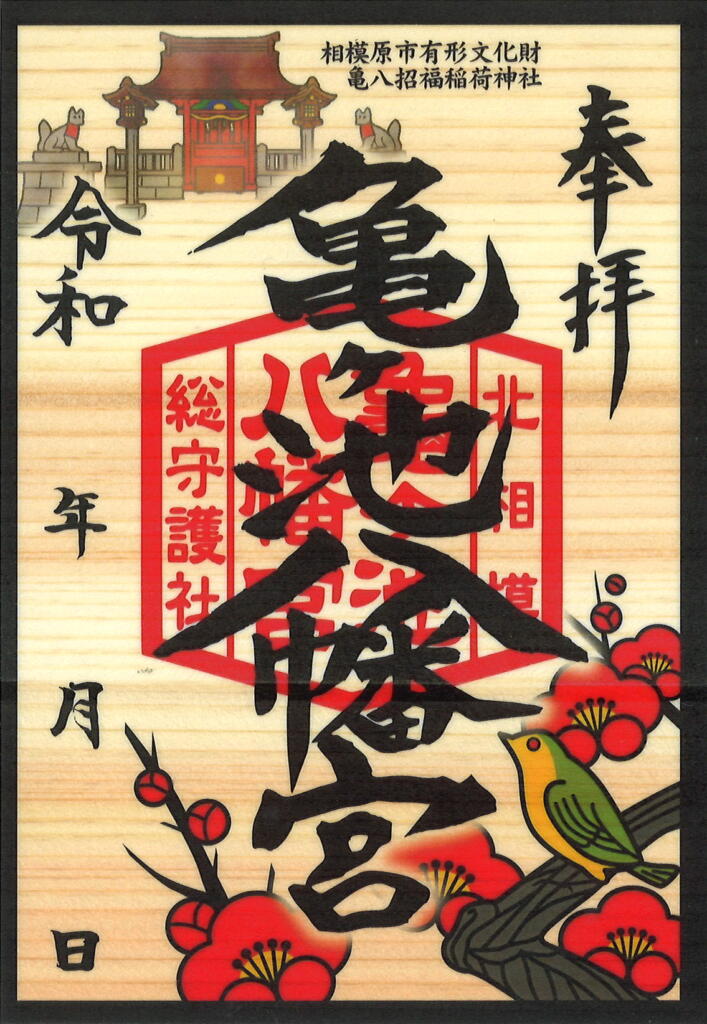 相模原市有形文化財
亀八招福稲荷神社
奉拝
北相模
亀ヶ池
八幡宮
総守護社
亀ヶ池八幡宮
令和 年 月 日